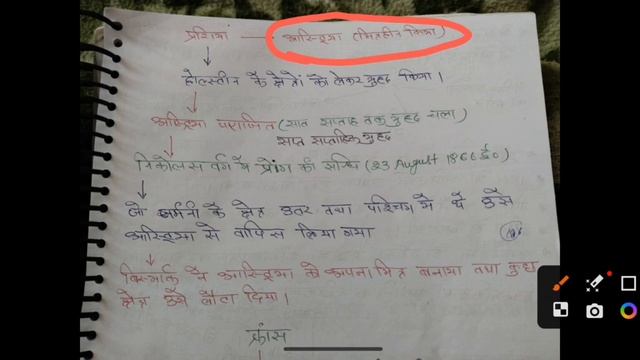 प्रशिया — आस्ट्रिया (मित्रहीन किया)
होल्स्टीन के क्षेत्रों को लेकर युद्ध किया।
आस्ट्रिया पराजित (सात सप्ताह तक युद्ध चला)
सप्त सप्ताहिक युद्ध
निकोलस वर्ग व प्रेाग की सन्धि (23 August 1866 ई०)
जो जर्मनी के क्षेत्र उतर तथा पश्चिम में थे उसे
आस्ट्रिया से वापिस लिया गया
बिस्मार्क ने आस्ट्रिया को अपना मित्र बनाया तथा कुछ
क्षेत्र उसे लौटा दिया।
फ्रांस